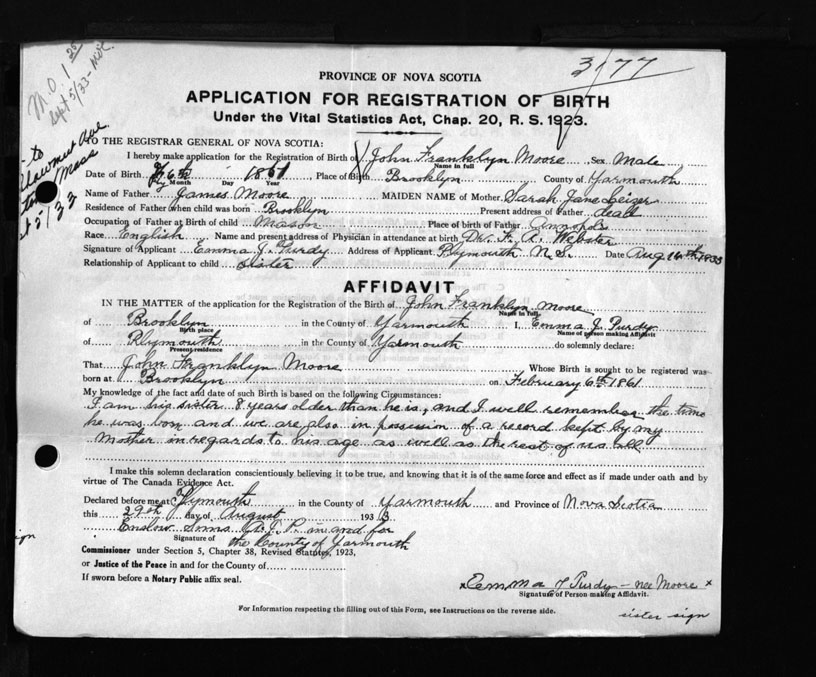 M.O. 1 25
Sept 5/33
3177
PROVINCE OF NOVA SCOTIA
APPLICATION FOR REGISTRATION OF BIRTH
Under the Vital Statistics Act, Chap. 20, R. S. 1923.
to
Ave
Mass
5/33
TO THE REGISTRAR GENERAL OF NOVA SCOTIA:
I hereby make application for the Registration of Birth of John Franklyn Moore Sex Male
Name in full
Date of Birth 6th 1861 Place of Birth Brooklyn County of Yarmouth
Month Day Year
Name of Father James Moore MAIDEN NAME of Mother Sarah Jane
Residence of Father when child was born Brooklyn Present address of Father dead
Occupation of Father at Birth of child Mason Place of birth of Father
Race English Name and present address of Physician in attendance at birth Dr. F. A. Webster
Signature of Applicant Emma J. Purdy Address of Applicant Plymouth N.S. Date Aug 1933
Relationship of Applicant to child Sister
AFFIDAVIT
IN THE MATTER of the application for the Registration of the Birth of John Franklyn Moore
Name in full
of Brooklyn in the County of Yarmouth I, Emma J. Purdy
Birth place Name of person making Affidavit
of Plymouth in the County of Yarmouth do solemnly declare:
Present residence
That John Franklyn Moore Whose Birth is sought to be registered was
born at Brooklyn on February 6th 1861
My knowledge of the fact and date of such Birth is based on the following Circumstances:
I am his sister 8 years older than he is, and I well remember the time
he was born and we are also in possesion of a record kept by my
Mother in regards to his age as well as the rest of us all
I make this solemn declaration conscientiously believing it to be true, and knowing that it is of the same force and effect as if made under oath and by
virtue of The Canada Evidence Act.
Declared before me at Plymouth in the County of Yarmouth and Province of Nova Scotia
this 29th day of August 1933
Enslow Sims A J. P. in and for
Signature of the County of Yarmouth
Commissioner under Section 5, Chapter 38, Revised Statutes, 1923,
or Justice of the Peace in and for the County of
If sworn before a Notary Public affix seal.
x Emma J Purdy - nee Moore x
Signature of Person making Affidavit.
For Information respecting the filling out of this Form, see Instructions on the reverse side.
sister sign